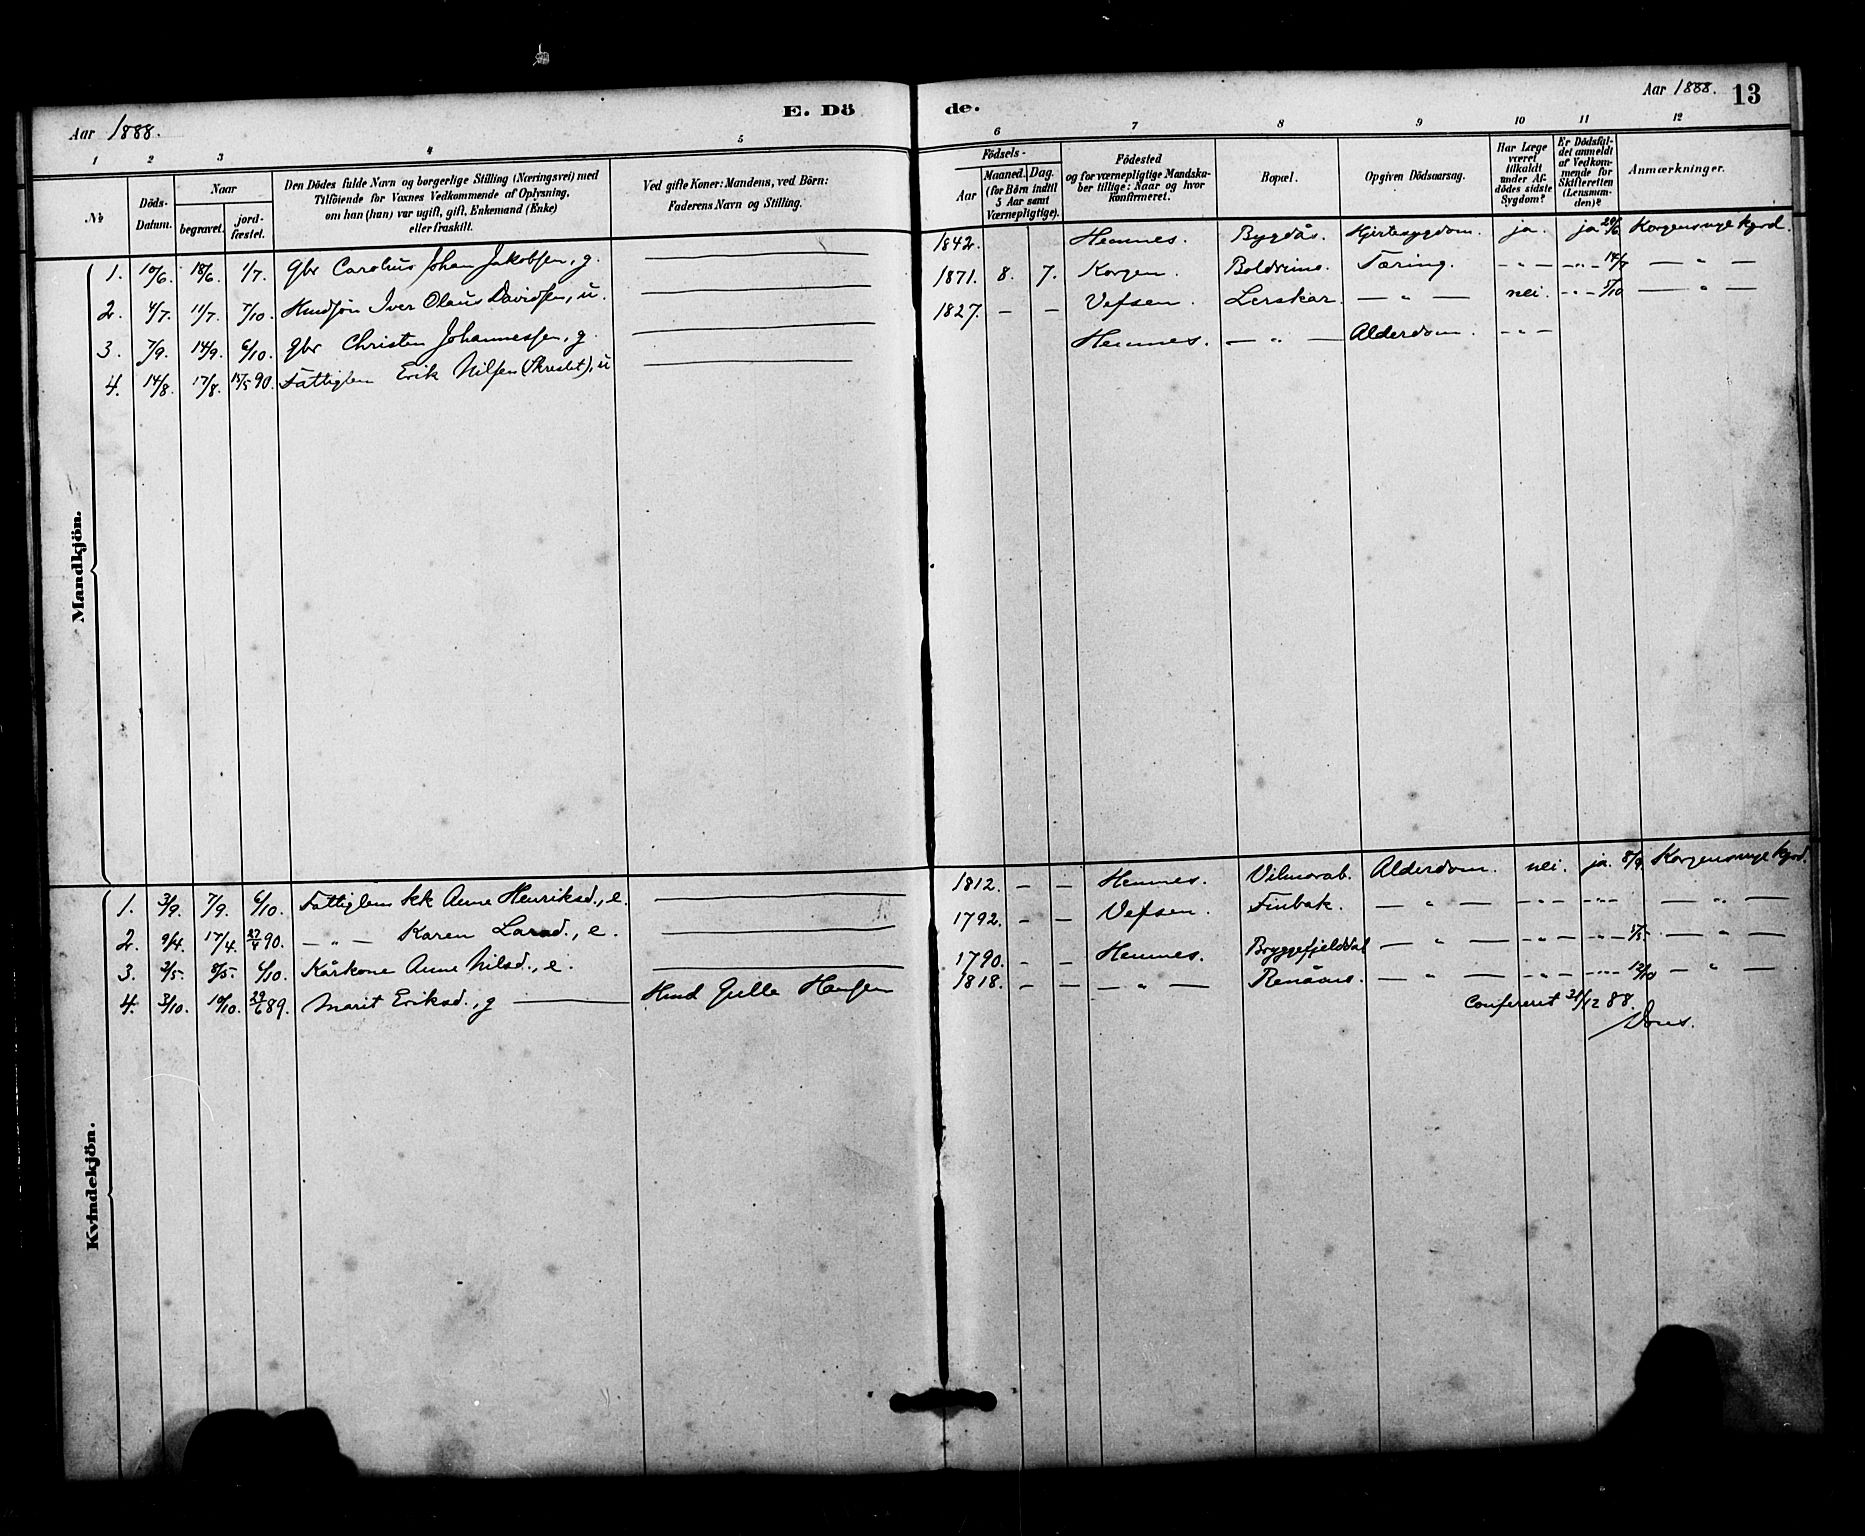 Aar 1888.
E. Dö de.
Aar 1888. 13
1 2 3 4 5 6 7 8 9 10 11 12
№
Döds-Datum.
Naar
begravet.
jordfæstet.
Den Dödes fulde Navn og borgerlige Stilling (Næringsvei) med
Tilföiende for Voxnes Vedkommende af Oplysning,
om han (hun) var ugift, gift, Enkemand (Enke)
eller fraskilt.
Ved gifte Koner: Mandens, ved Börn:
Faderens Navn og Stilling.
Födsels-
Aar
Maaned. Dag.
(for Börn indtil
5 Aar samt
Værnepligtige).
Födested
og for værnepligtige Mandskaber tillige: Naar og hvor
konfirmeret.
Bopæl.
Opgiven Dödsaarsag.
Har Læge
været
tilkaldt
under Afdödes sidste
Sygdom?
Er Dödsfaldet anmeldt
af Vedkommende for
Skifteretten
(Lensmanden)?
Anmærkninger.
Mandkjön.
1. 10/6. 18/6. 1/7. Gbr Carolius Johan Jakobsen, g. 1842. Hemnes. Bygdås. Hjertesygdom. ja. ja 20/6 Korgens nye kgrd.
2. 4/7. 11/7. 7/10. Huusfön Iver Olaus Davidsen, u. 1871. 8. 7. Korgen. Boldrimo. Tæring. - " - - " - 14/7 - " -
3. 7/9. 14/9. 6/10. Gbr Christen Johannessen, g. 1827. - - Vefsen. Lerskar. - " - nei. - " - 5/10 - " -
4. 14/8. 17/8. 15/5 90. Fattiglem Erik Nilsen, u Hemnes. - " - Alderdom. - " -
Kvindekjön.
1. 3/9. 7/9. 6/10. Fattiglem kk Anne Henriksd., e. 1812. - - Hemnes. Alderdom. nei. ja. 8/9. Korgens nye kgrd.
2. 9/4. 17/4. 90. - " - Karen Larsd., e. 1792. - - Vefsen. Finbak. - " - - " - - " - - " -
3. 2/5. 9/5. 6/10. Kårkone Anne Nilsd., e. 1790. - - Hemnes. Bryggefjelddal - " - - " - - " - - " -
4. 3/10. 10/10. 29/6 89. Marit Eriksd., g Hmd Gulle Hansen 1818. - - - " - Renåens. - " - - " - - " - 12/10 - " -
Confereret 31/12 88.